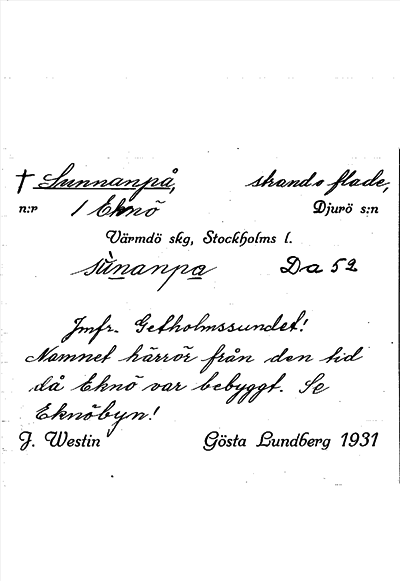 † Sunnanpå, strands flade,
n:r 1 Eknö Djurö s:n
Värmdö skg, Stockholms l.
sùnanpa Da 52
Jmfr. Getholmssundet!
Namnet härrör från den tid
då Eknö var bebyggt. Se
Eknöbyn!
J. Westin Gösta Lundberg 1931